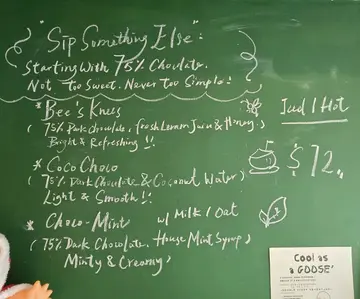 "Sip Something Else":
Starting With 75% Chocolate.
Not Too Sweet. Never Too Simple!
* Bee's Knees
(75% Dark Chocolate, fresh Lemon Juice & Honey)
Bright & Refreshing!!
Iced / Hot
$72
* Coco Choco
(75% Dark Chocolate & Coconut Water)
Light & Smooth!!
* Choco-Mint w/ Milk / Oat
(75% Dark Chocolate, House Mint Syrup)
Minty & Creamy)
Cool as
a GOOSE